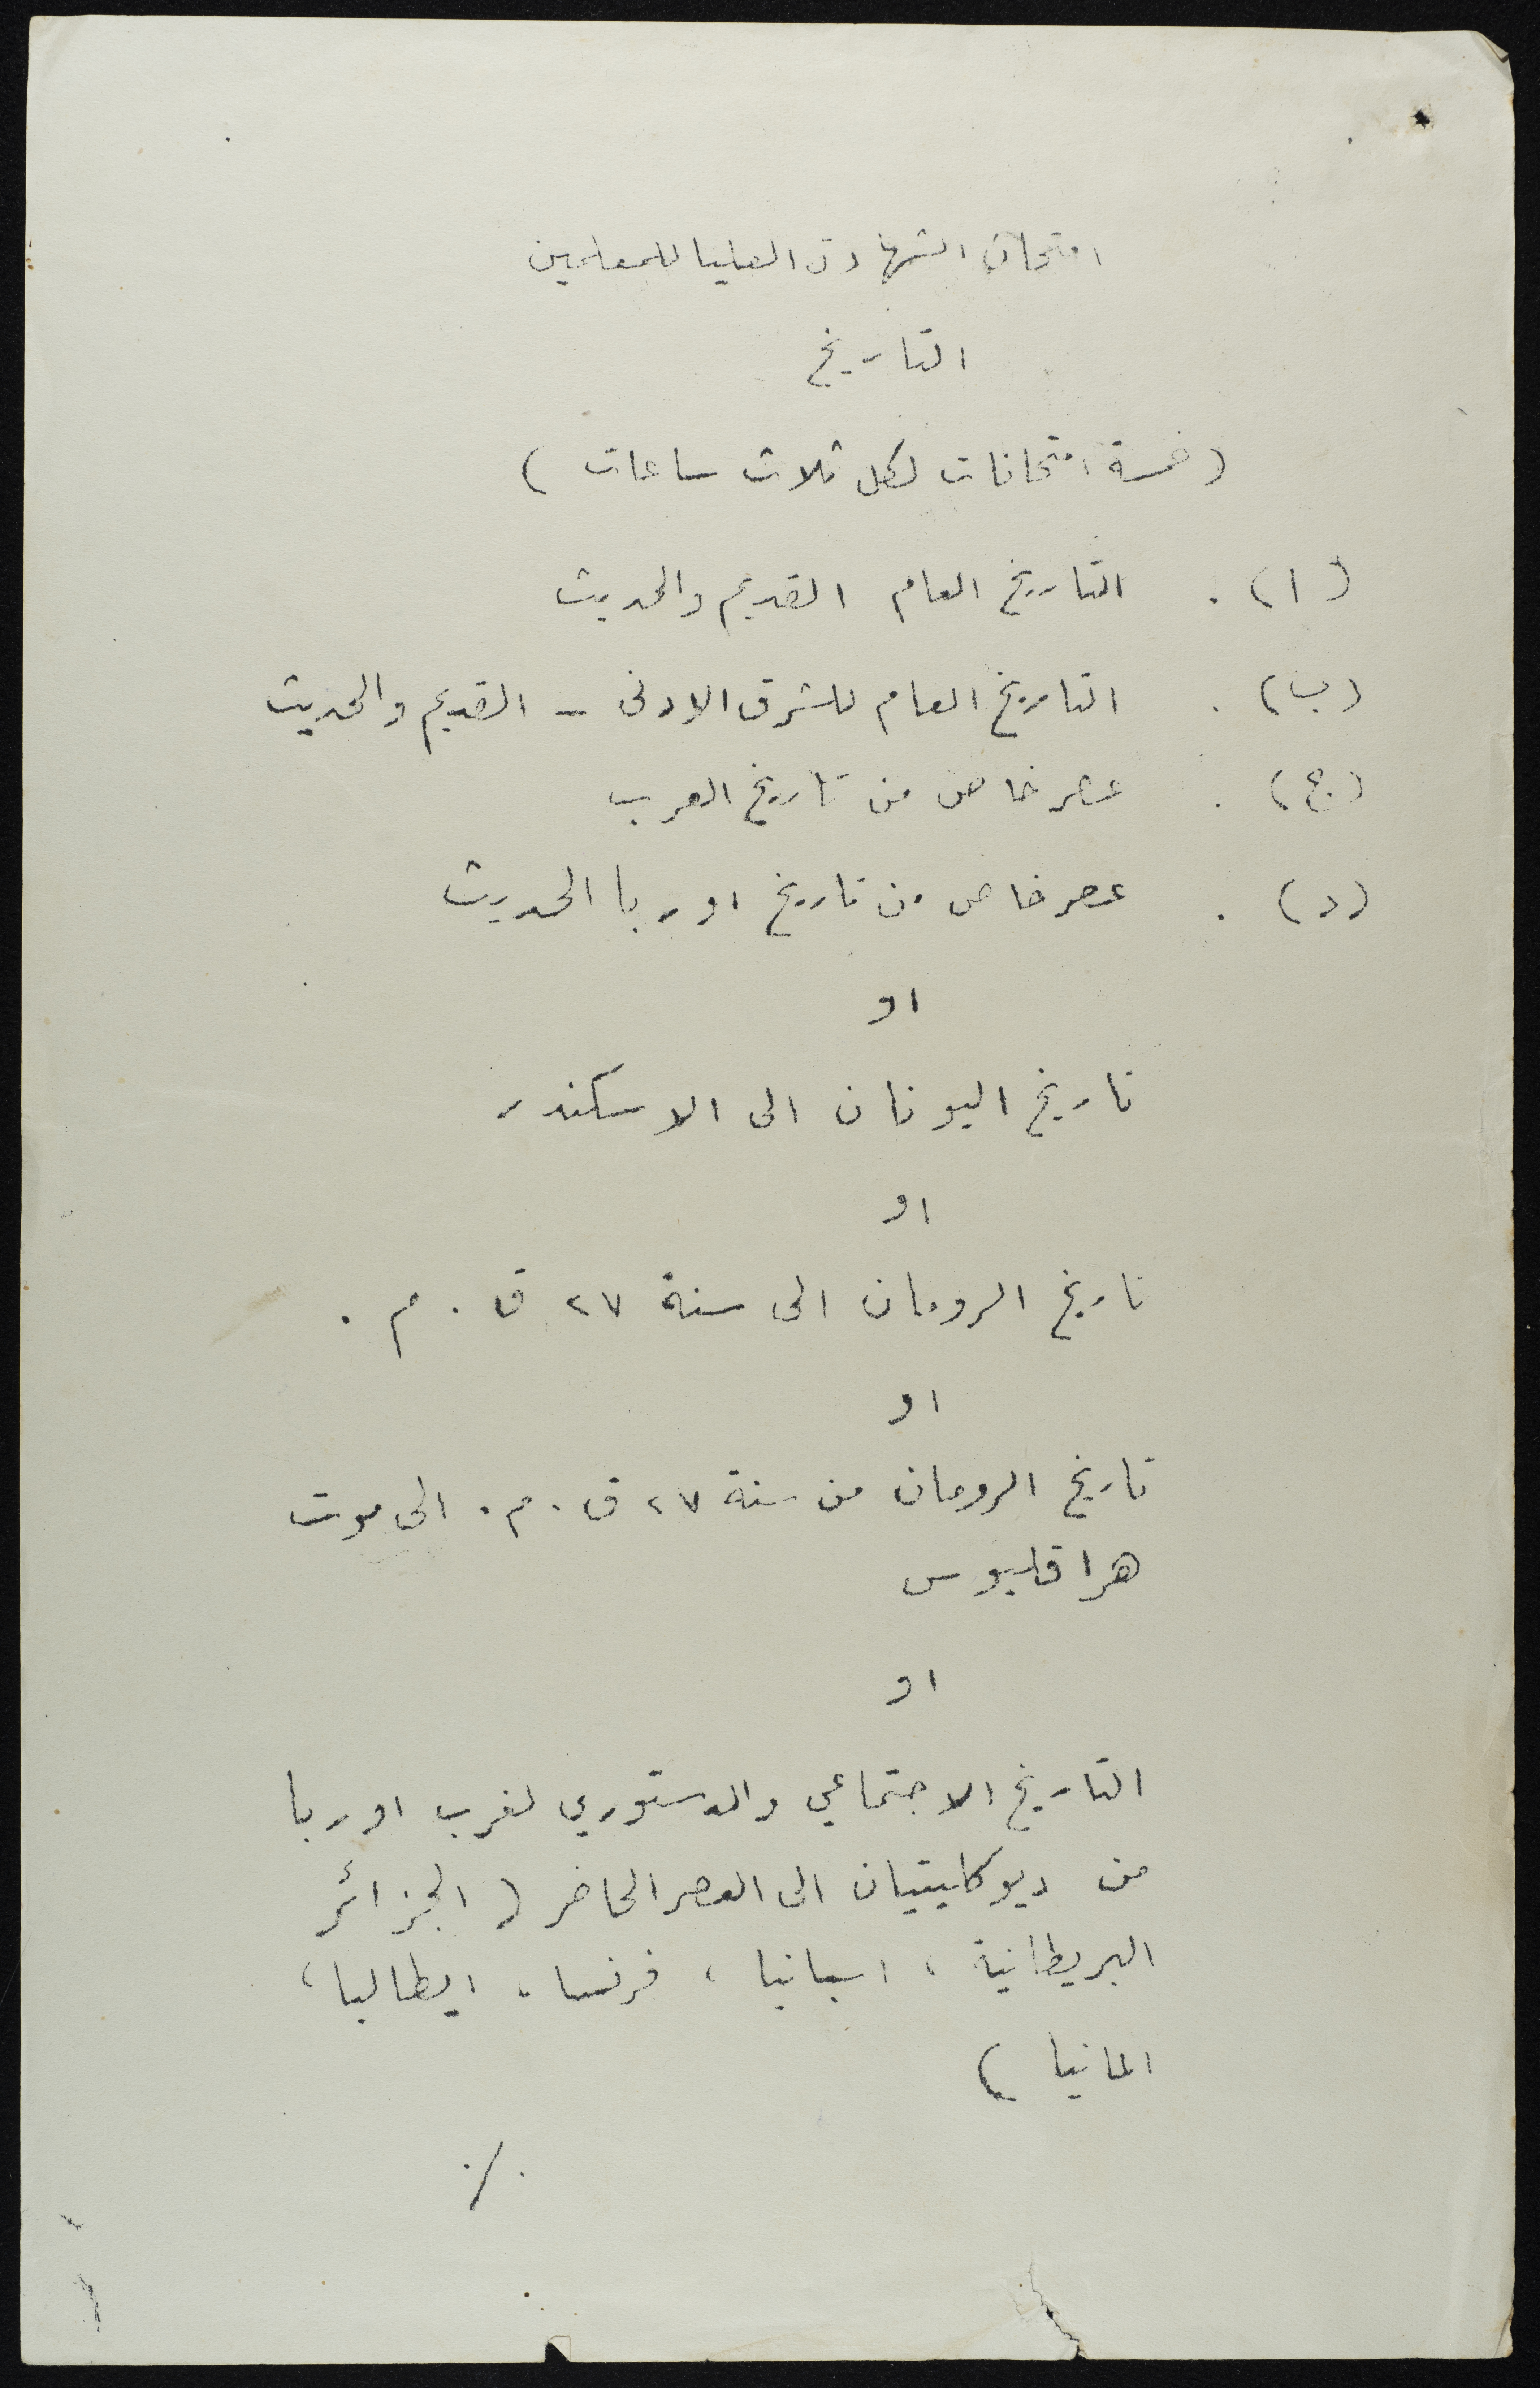 امتحان الشهادة العليا للمعلمين
التاريخ
(خمسة امتحانات لكل ثلاث ساعات)
(ا) . التاريخ العام القديم والحديث
(ب) . التاريخ العام للشرق الادنى - القديم والحديث
(ج) . عصر خاص من تاريخ العرب
(د) . عصر خاص من تاريخ اوربا الحديث
او
تاريخ اليونان الى الاسكندر
او
تاريخ الرومان الى سنة ٢٧ ق . م .
او
تاريخ الرومان من سنة ٢٧ ق . م . الى موت
هراقليوس
او
التاريخ الاجتماعي والدستوري لغرب اوربا
من ديوكليتيان الى العصر الحاضر ( الجزائر
البريطانية ، اسبانيا ، فرنسا ، ايطاليا ،
المانيا )
./.